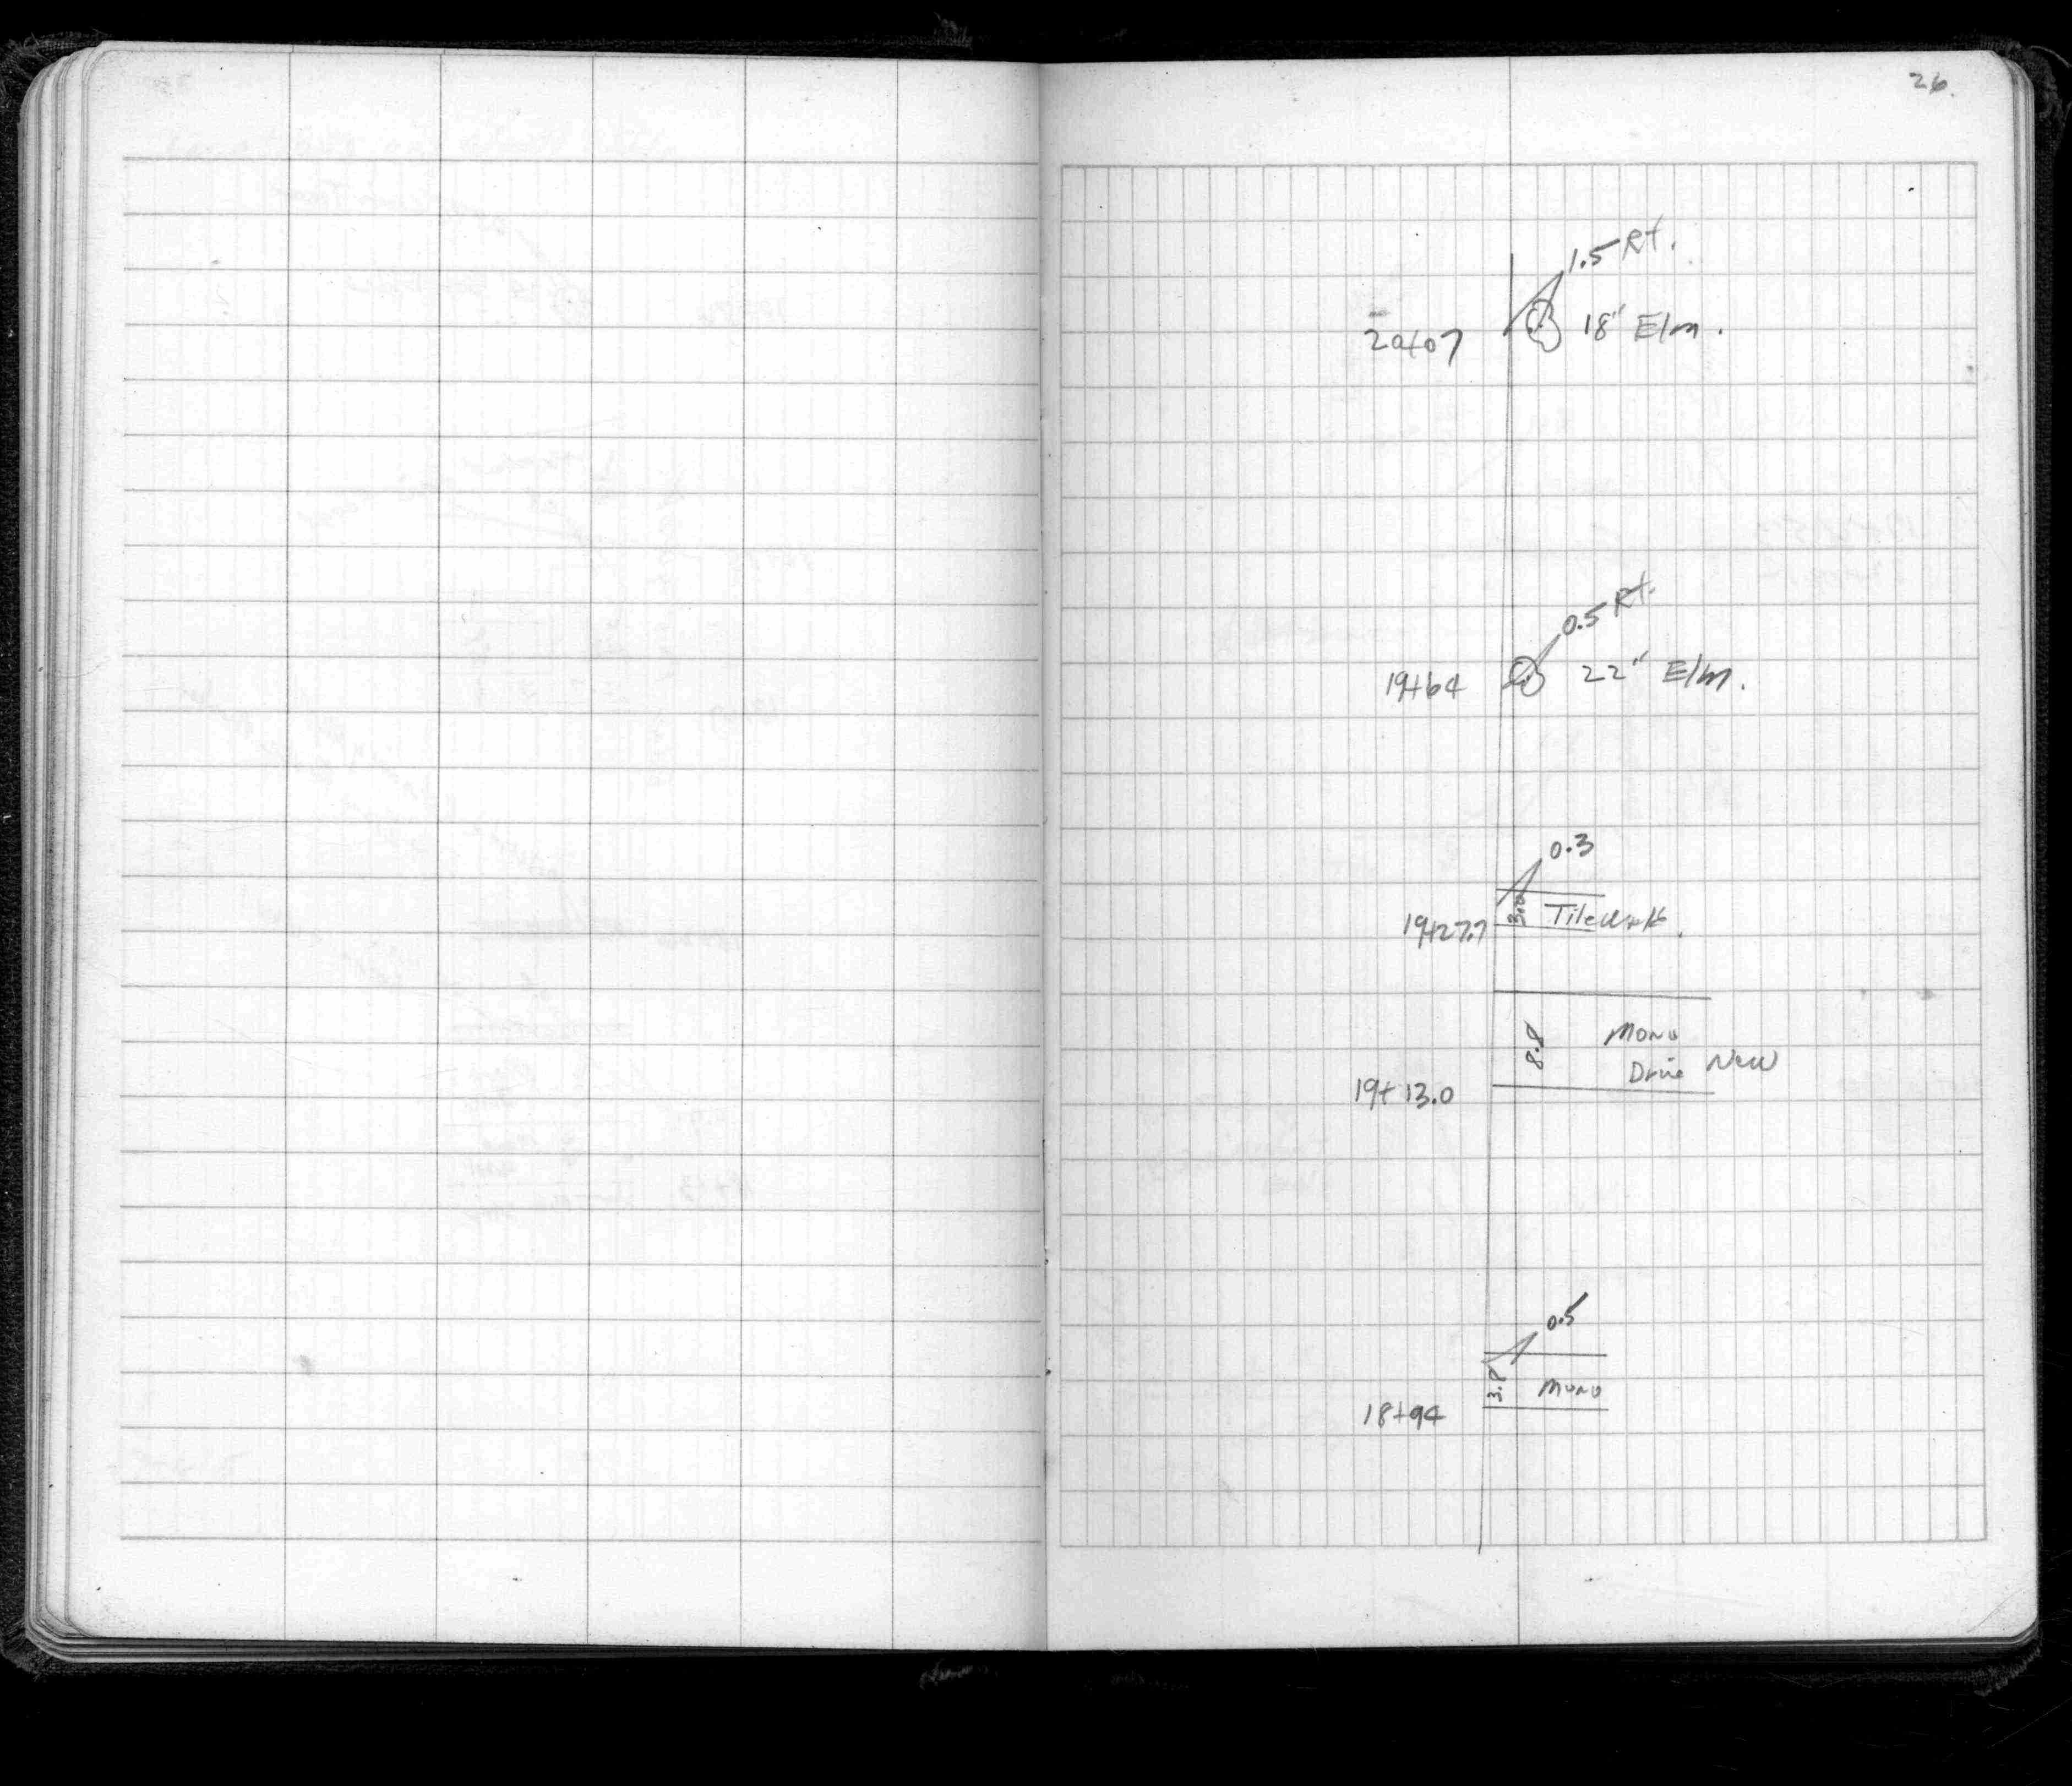 26.
1.5 Rt.
20+07 18" Elm.
0.5 Rt.
19+64 22" Elm.
0.3
3.0 Tile Walk.
19+27.7
8.8 Mono
Drive New
19+13.0
0.5
3.8 Mono
18+94